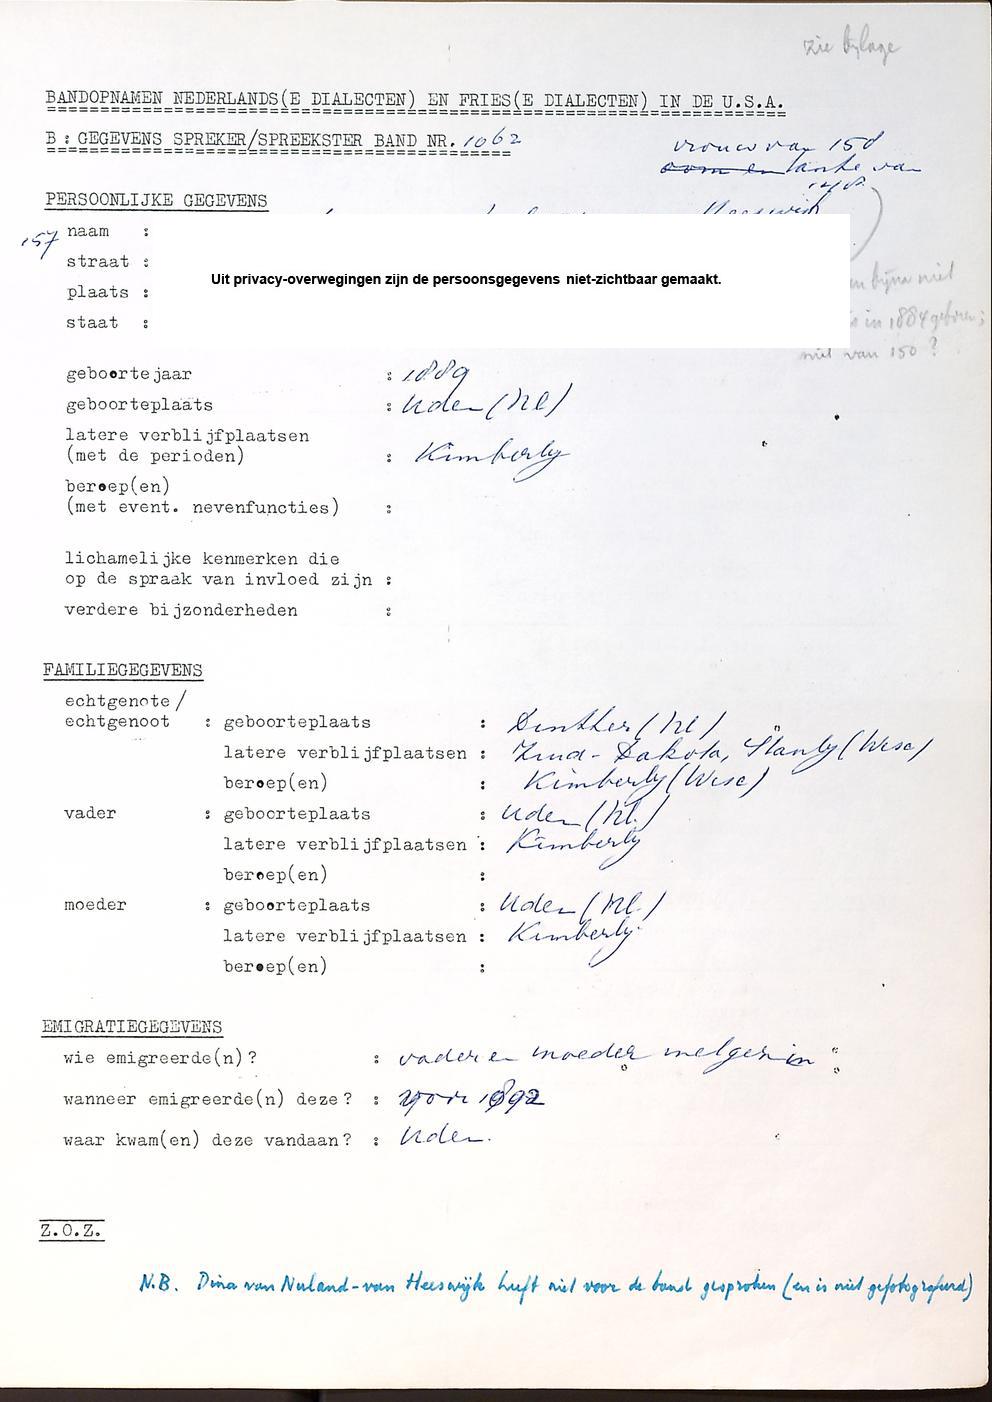 zie bylage
BANDOPNAMEN NEDERLANDS(E DIALECTEN) EN FRIES(E DIALECTEN) IN DE U.S.A.
B: GEGEVENS SPREKER/SPREEKSTER BAND NR. 1062
vrouw van 158
oom en tante van
148.
PERSOONLIJKE GEGEVENS
157 naam :
straat :
Uit privacy-overwegingen zijn de persoonsgegevens niet-zichtbaar gemaakt.
plaats : en bijna niet
staat : is in 1884 geboren;
niet van 150?
geboortejaar : 1889
geboorteplaats : Uden (Nl)
latere verblijfplaatsen
(met de perioden) : Kimberly
beroep(en)
(met event. nevenfuncties) :
lichamelijke kenmerken die
op de spraak van invloed zijn :
verdere bijzonderheden :
FAMILIEGEGEVENS
echtgenote/
echtgenoot : geboorteplaats : Dinther (Nl)
latere verblijfplaatsen : Zuid-Dakota, Stanly (Wisc)
beroep(en) : Kimberly (Wisc)
vader : geboorteplaats : Uden (Nl.)
latere verblijfplaatsen : Kimberly
beroep(en) :
moeder : geboorteplaats : Uden (Nl.)
latere verblijfplaatsen : Kimberly.
beroep(en) :
EMIGRATIEGEGEVENS
wie emigreerde(n)? : vader en moeder met gezin
wanneer emigreerde(n) deze? : voor 1892
waar kwam(en) deze vandaan? : Uden.
Z.O.Z.
N.B. Dina van Nuland-van Heeswijk heeft niet voor de band gesproken (en is niet gefotografeerd)